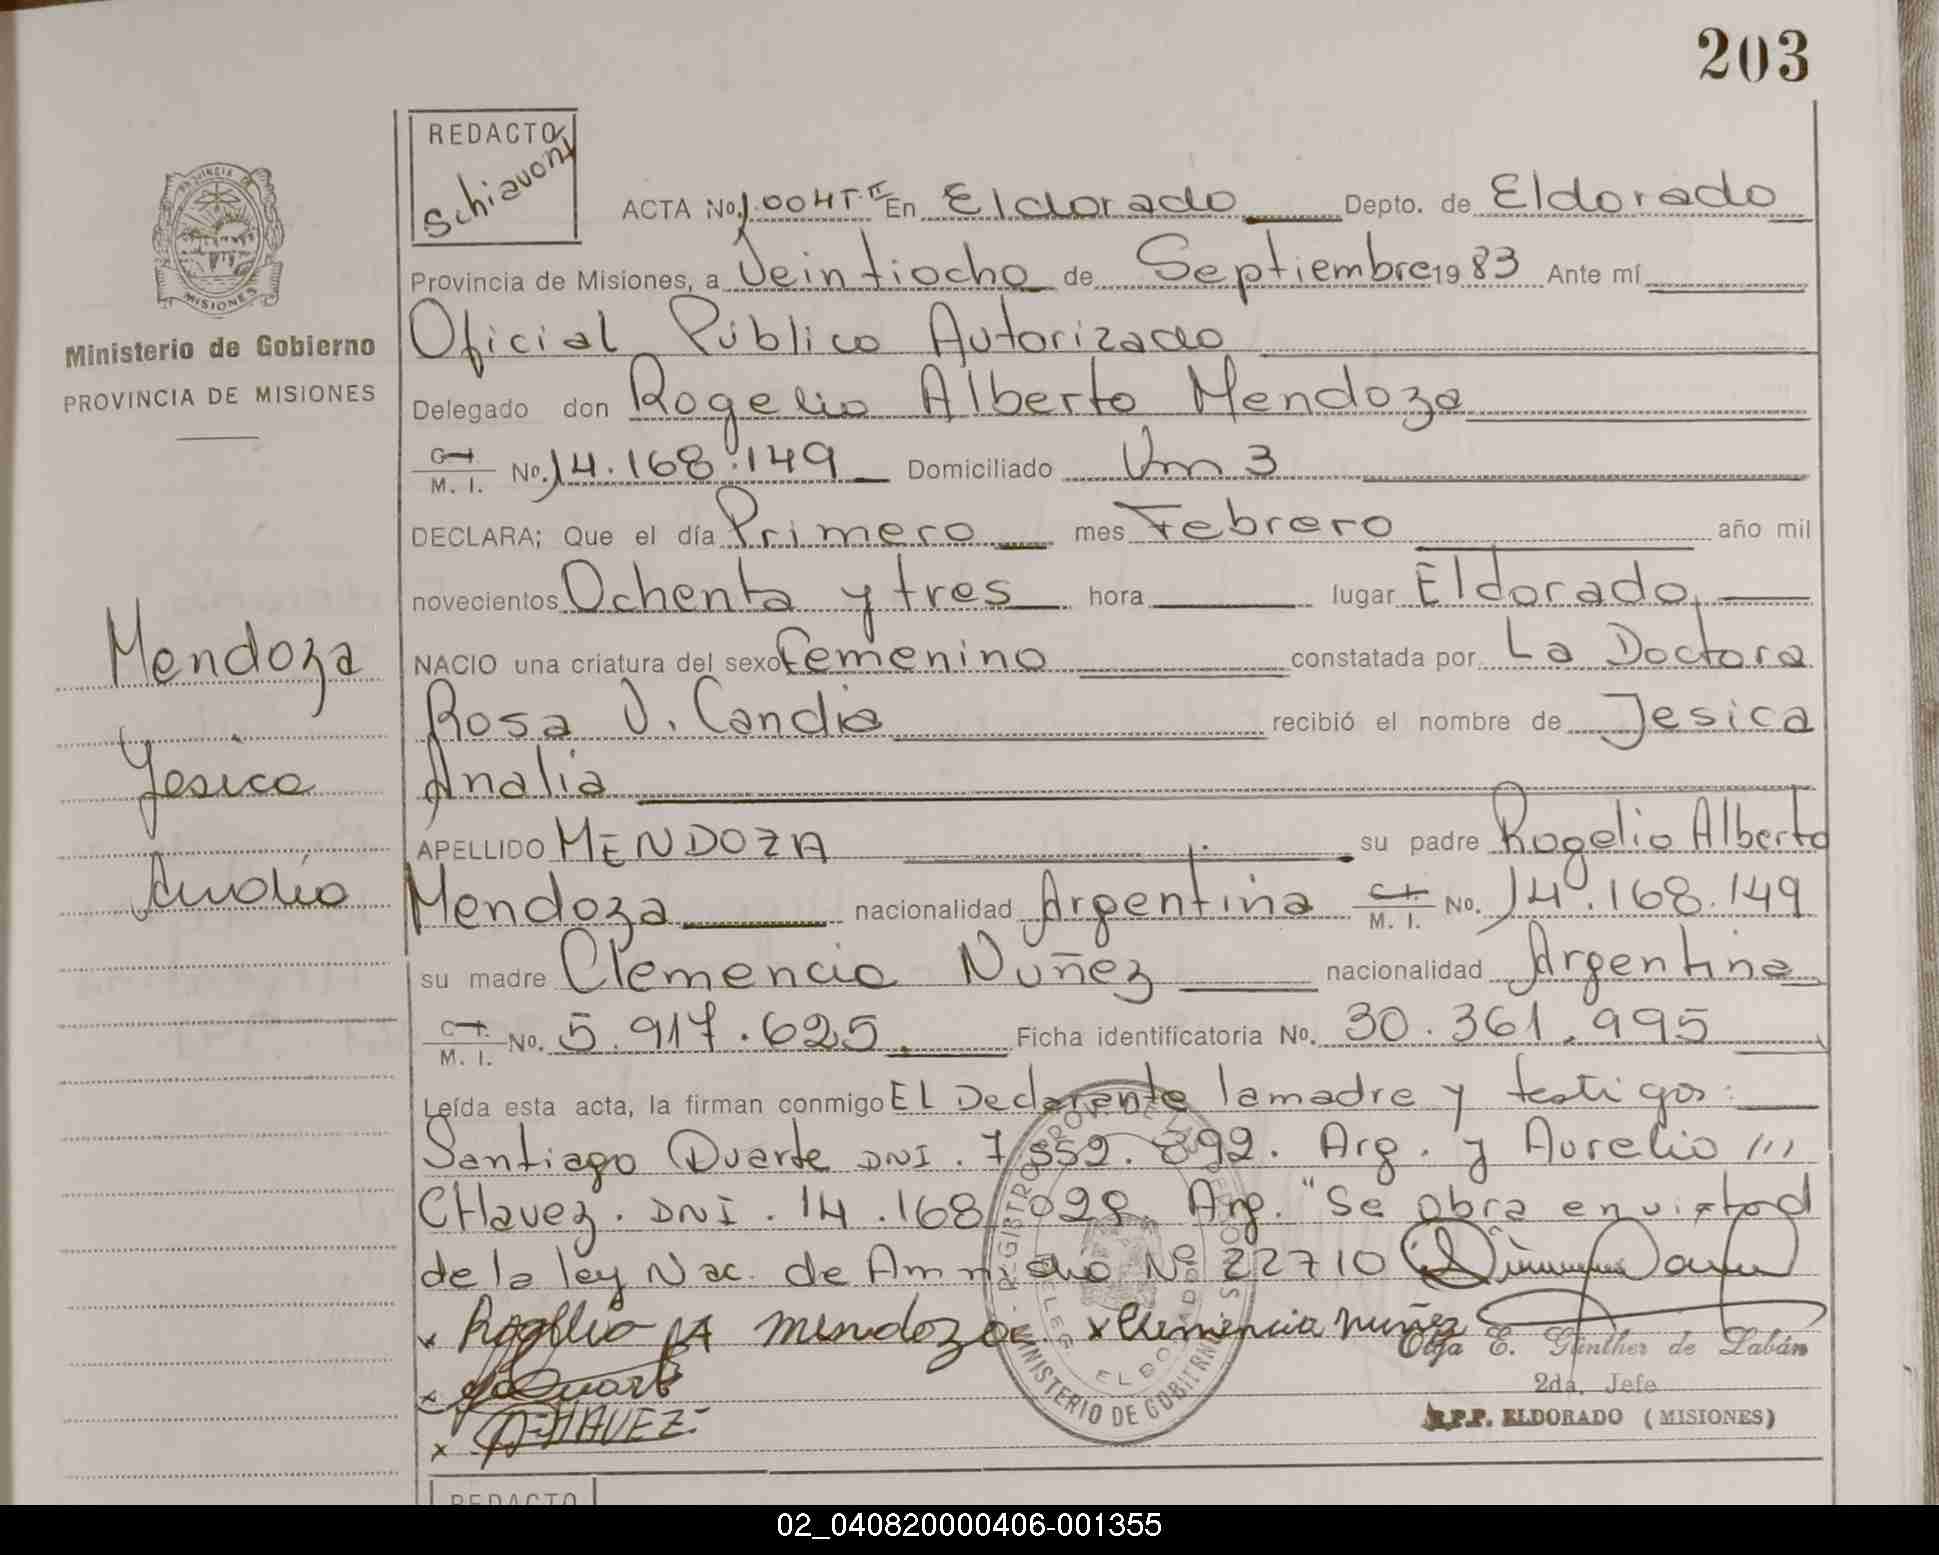 203
REDACTO
Schiavoni
ACTA No. 1.004 T. II En Eldorado Depto. de Eldorado
Provincia de Misiones, a Veintiocho de Septiembre 19 83 Ante mí
Oficial Público Autorizado
Delegado don Rogelio Alberto Mendoza
C.I. M. I. No. 14.168.149 Domiciliado Km 3
DECLARA; Que el día Primero mes Febrero año mil
novecientos Ochenta y tres hora lugar Eldorado,
NACIO una criatura del sexo femenino constatada por La Doctora
Rosa V. Candia recibió el nombre de Jesica
Analia
APELLIDO MENDOZA su padre Rogelio Alberto
Mendoza nacionalidad Argentina C.I. M. I. No. 14.168.149
su madre Clemencia Nuñez nacionalidad Argentina
C.I. M. I. No. 5.917.625. Ficha identificatoria No. 30.361.995
Leída esta acta, la firman conmigo El Declarante la madre y testigos:
Santiago Duarte DNI. 7.552.892. Arg. y Aurelio
CHavez. DNI. 14.168.028. Arg. "Se obra en virtud
de la ley Nac. de Amnistia Nº 22710
x Rogelio A mendoza x Clemencia nuñez
Olga E. Günther de Labán
2da. Jefe
R.P.P. ELDORADO (MISIONES)
x Duarte
x A CHAVEZ
MINISTERIO DE GOBIERNO
PROVINCIA DE MISIONES
Ministerio de Gobierno
PROVINCIA DE MISIONES
Mendoza
Jesica
Analia
REDACTO
02_040820000406-001355